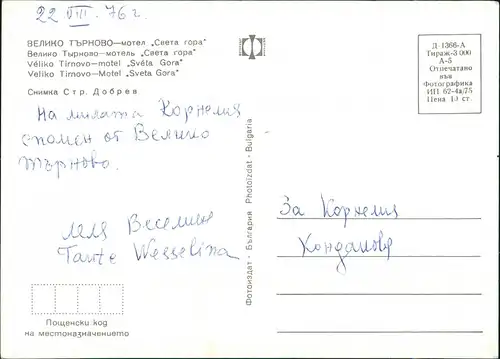 22 VIII. 76 г.
ВЕЛИКО ТЪРНОВО—мотел „Света гора"
Велико Тырново—мотель „Света гора"
Véliko Tirnovo—motel „Svéta Gora"
Veliko Tirnovo—Motel „Sveta Gora"
Снимка Стр. Добрев
На милата Корнелия
спомен от Велико
Търново.
леля Веселина
Tante Wesselina
Пощенски код
на местоназначението
Фотоиздат · България Photoizdat · Bulgaria
Д-1366-А
Тираж-3 000
А-5
Отпечатано
във
Фотографика
ИП 62-4а/75
Цена 10 ст.
За Корнелия